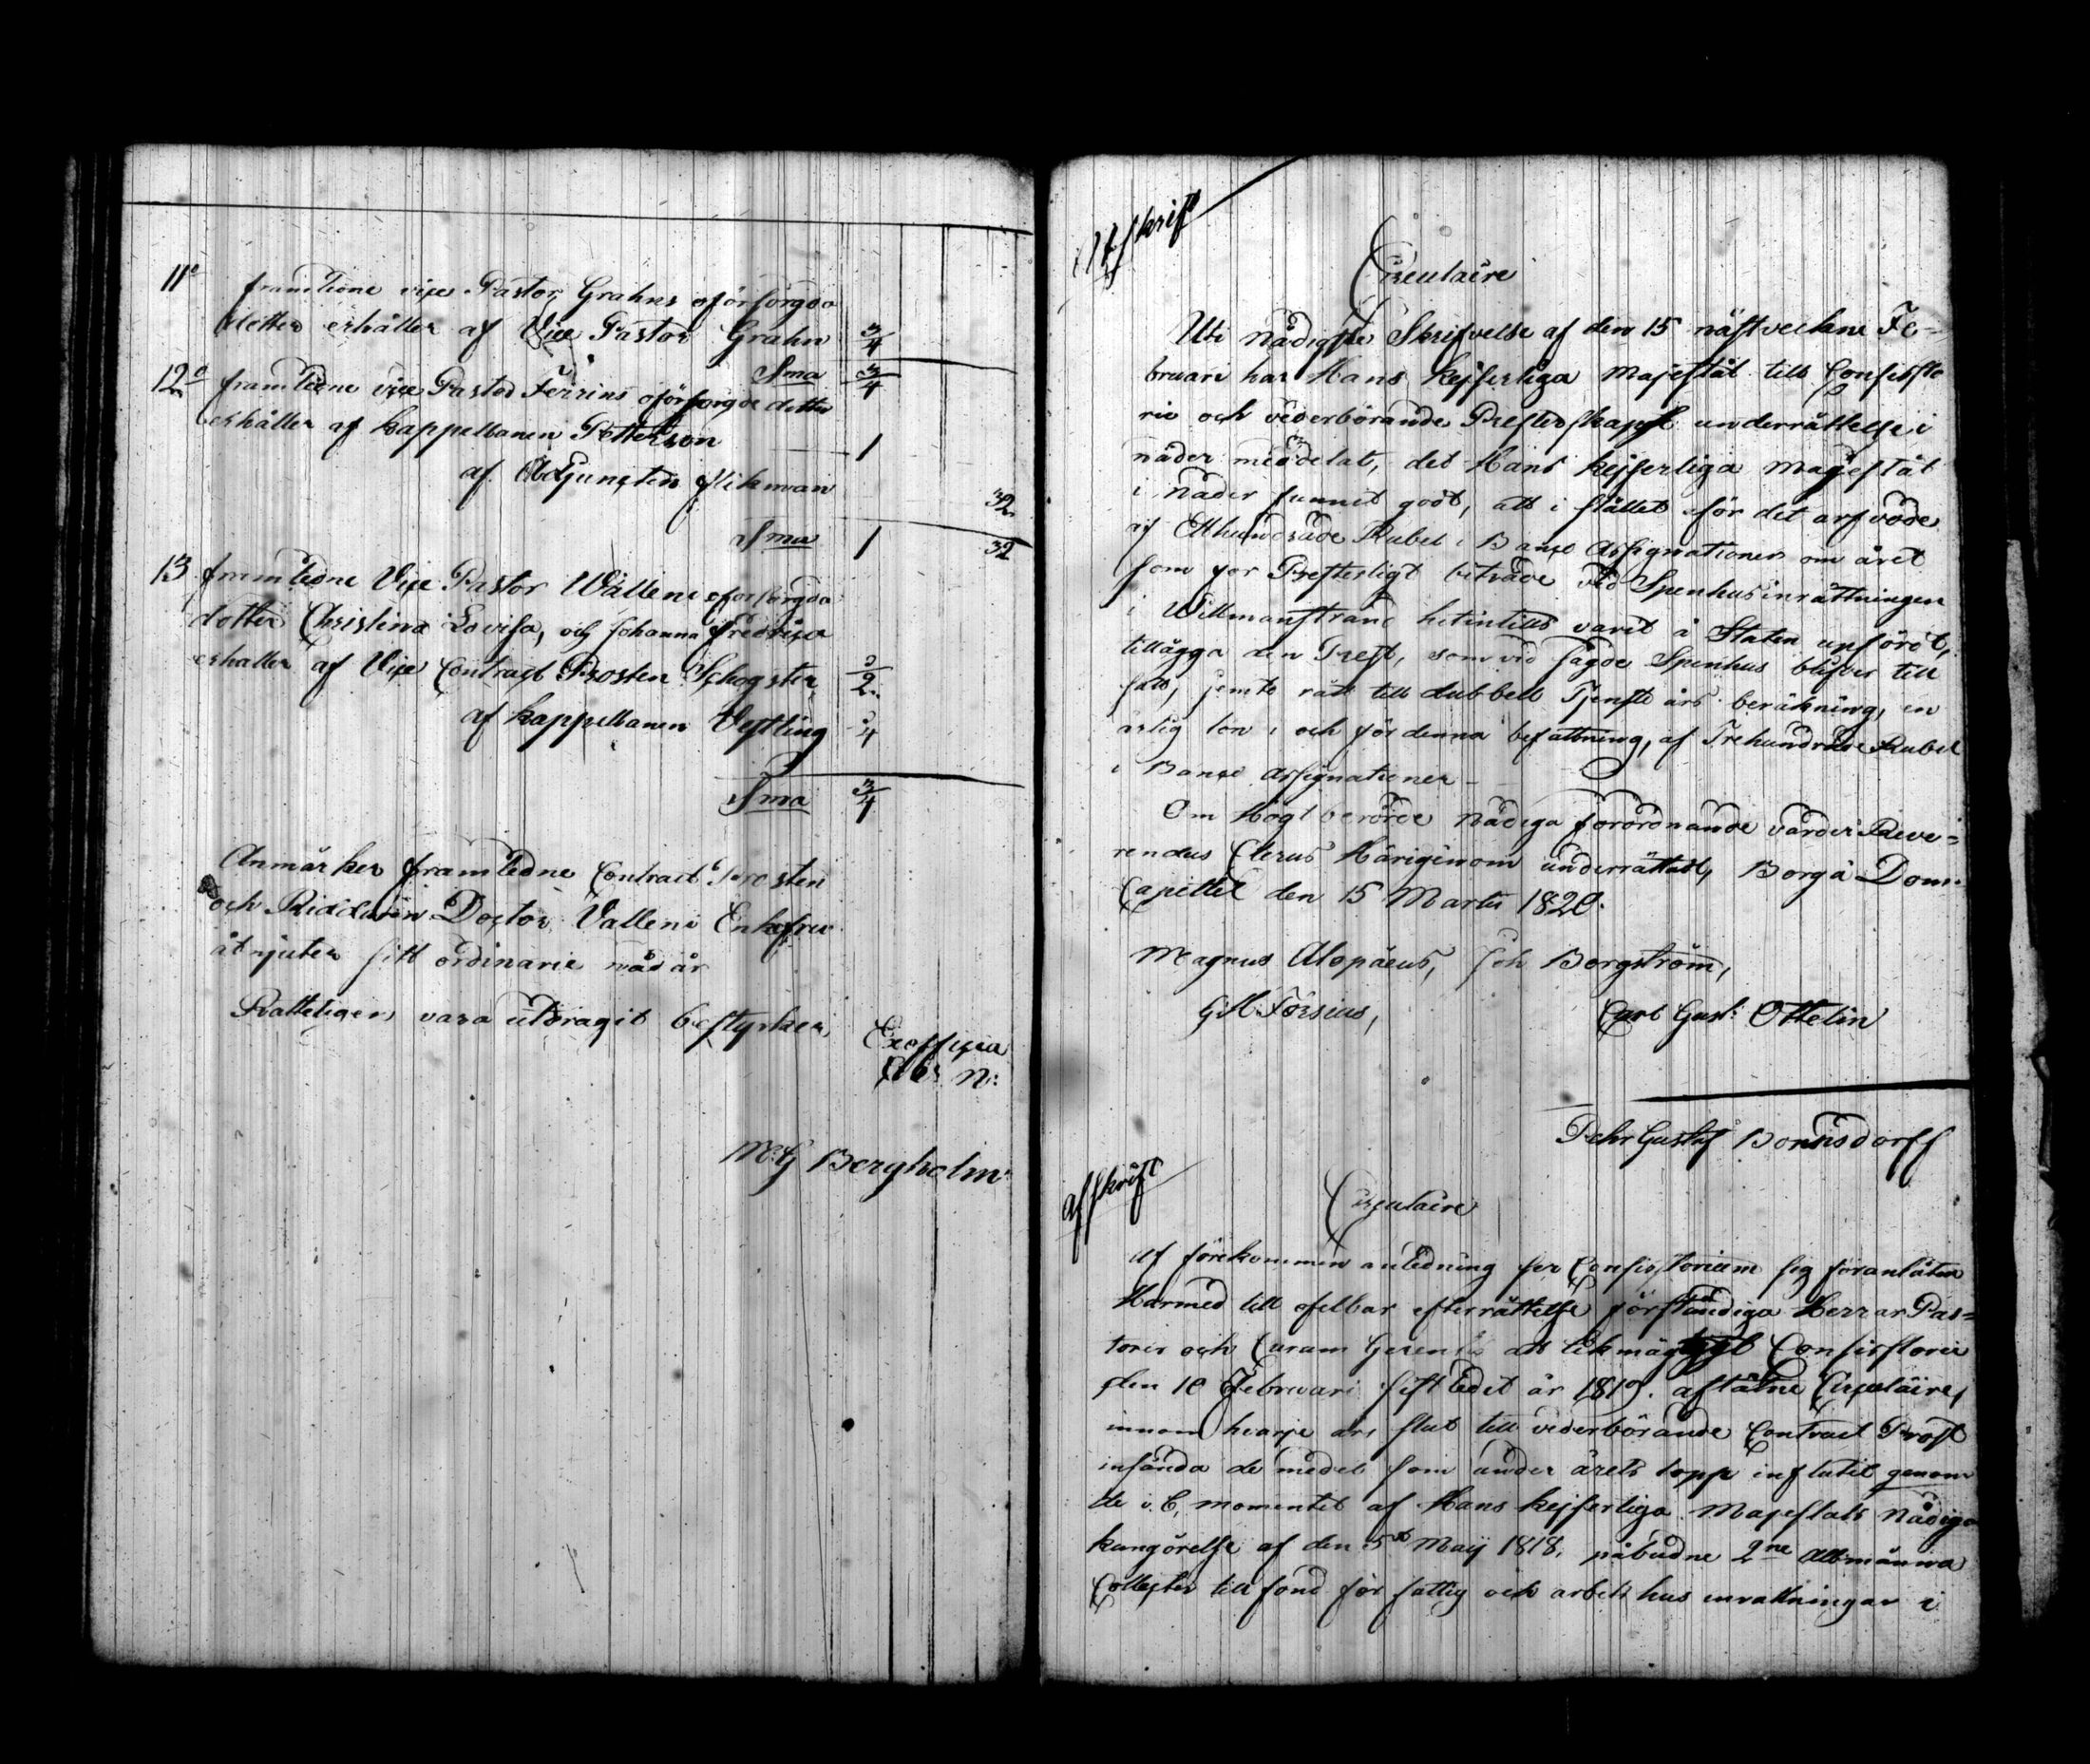 11o framledne vice Pastor Grahns oförsörgda
dotter erhåller af Vice Pastor Grahn 3/4
Sma 3/4
12o framledne vice Pastor Ferrins oförsörgde dotter
erhåller af kappellanen Petterson 1
af Adjuncten flikman 32
Sma 1 32
13 framledne Vice Pastor Wallens oförsörgda
dotter Christina Lovisa, och Johanna Fredrica
erhaller af Vice Contract Prosten Schogster 2
af kappellanen Vestling 4
Sma 3/4
Anmärkes framledne Contract Prosten
och Riddaren Doctor Valleni Enkefru
åtnjuter sitt ordinarie nådår
Rätteligen vara utdragit bestyrker,
Exofficia
N:
M:G Bergholm
Afskrift
Circulaire
Uti Nådigste Skrifvelse af den 15 näst vekne Fe-
bruari har Hans kejserliga Majestät till Consisto
rie och vederbörande Presterskapet underrättelse i
nåder meddelat, det Hans kejserliga Majestät
i Nåder funnit godt, att i stället för det arfvode
af Etthundrade Rubel i Banco Assignationer om året
som för Presterligt biträde vid Spenhusinrättningen
i Willmanstrand hitintills varit å Staten upfördt,
tillägga den Prest, som vid sagde Spenhus blifver till
satt, jemte rätt till dubbell Tjenste års beräkning, en
årlig lön, och för denna befattning, af Trehundrade Rubel
i Banco Assignationer -
Om Högt berörde Nådiga förordnande varder Reve-
rendus Clerus Härigenom underrättad, Borgå Dom-
Capittel den 15 Martii 1820.
Magnus Alopäeus, Joh Borgström,
G. M. Forsius, Carl Gust: Ottelin
Pehr Gustaf Bonnsdorff
afskrift
Circulaire
Af förekommen anledning ser Consistorium sig föranlåten
Harmed till ofelbar efterrättelse förständiga Herrar Pas-
torer och Curam Gerentes att likmägtigt Consistorii
den 10 Februari sistledit år 1819. aflåtne Circulaire,
innom hvarje års slut till vederbörande Contract Prost
insända de medel som under årets lopp influtit genom
de i C, momentet af Hans kejserliga Majestäts Nådiga
kungörelse af den 5 Maij 1818. påbudne 2ne Allmänna
Collecter till fond för fattig och arbetshus inrättningar i